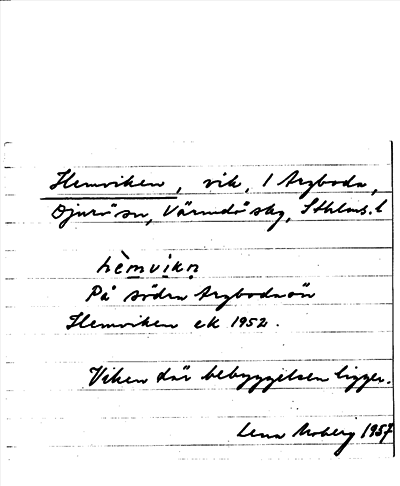 Hemviken, vik, 1 Aspboda,
Djurö sn, Värmdö skg, Sthlms. l
hèmvikṇ
På södra Aspbodaön
Hemviken ek 1952.
Viken där bebyggelsen ligger.
Lena Moberg 1957